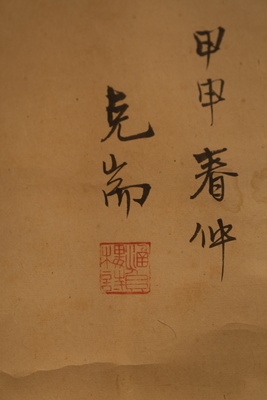 甲申春仲
克耑